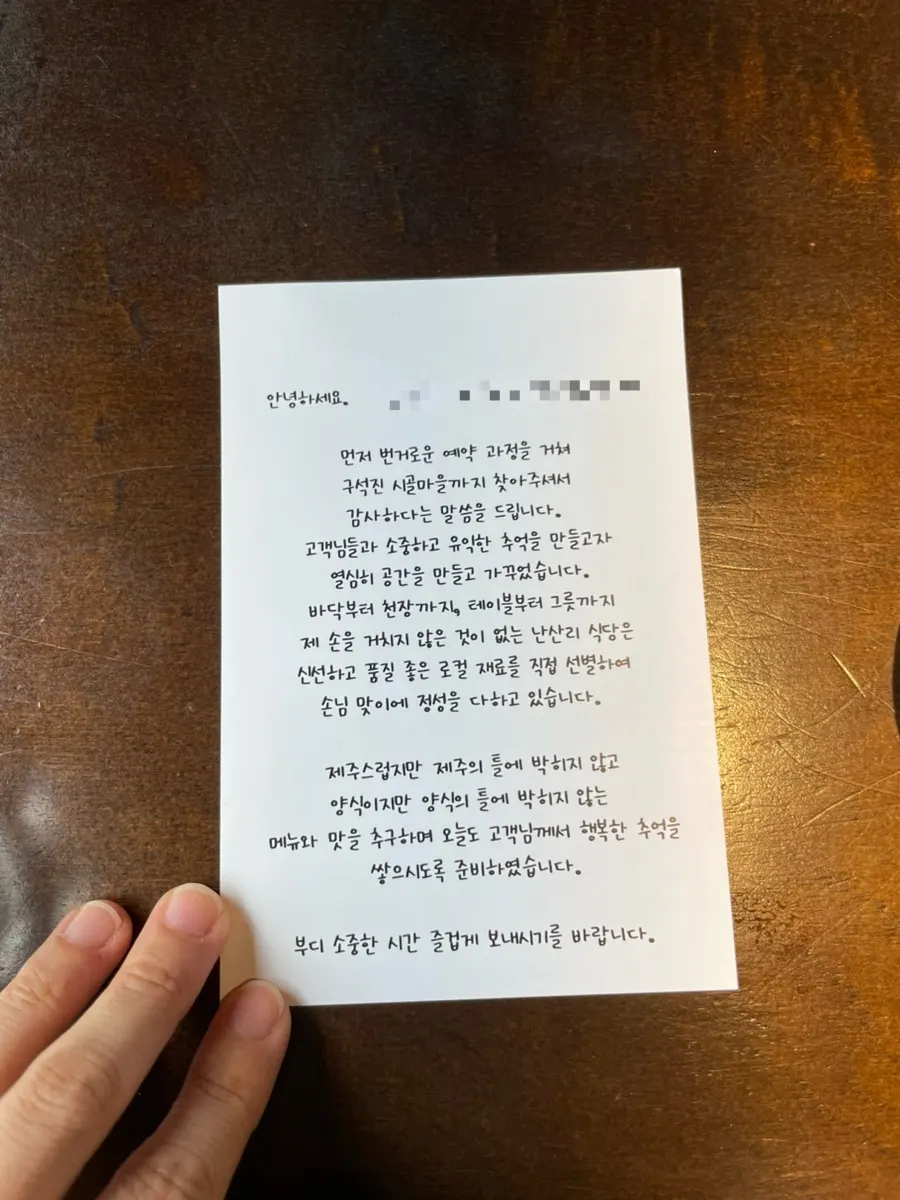 안녕하세요.
먼저 번거로운 예약 과정을 거쳐
구석진 시골마을까지 찾아주셔서
감사하다는 말씀을 드립니다.
고객님들과 소중하고 유익한 추억을 만들고자
열심히 공간을 만들고 가꾸었습니다.
바닥부터 천장까지, 테이블부터 그릇까지
제 손을 거치지 않은 것이 없는 난산리 식당은
신선하고 품질 좋은 로컬 재료를 직접 선별하여
손님 맞이에 정성을 다하고 있습니다.
제주스럽지만 제주의 틀에 박히지 않고
양식이지만 양식의 틀에 박히지 않는
메뉴와 맛을 추구하며 오늘도 고객님께서 행복한 추억을
쌓으시도록 준비하였습니다.
부디 소중한 시간 즐겁게 보내시기를 바랍니다.